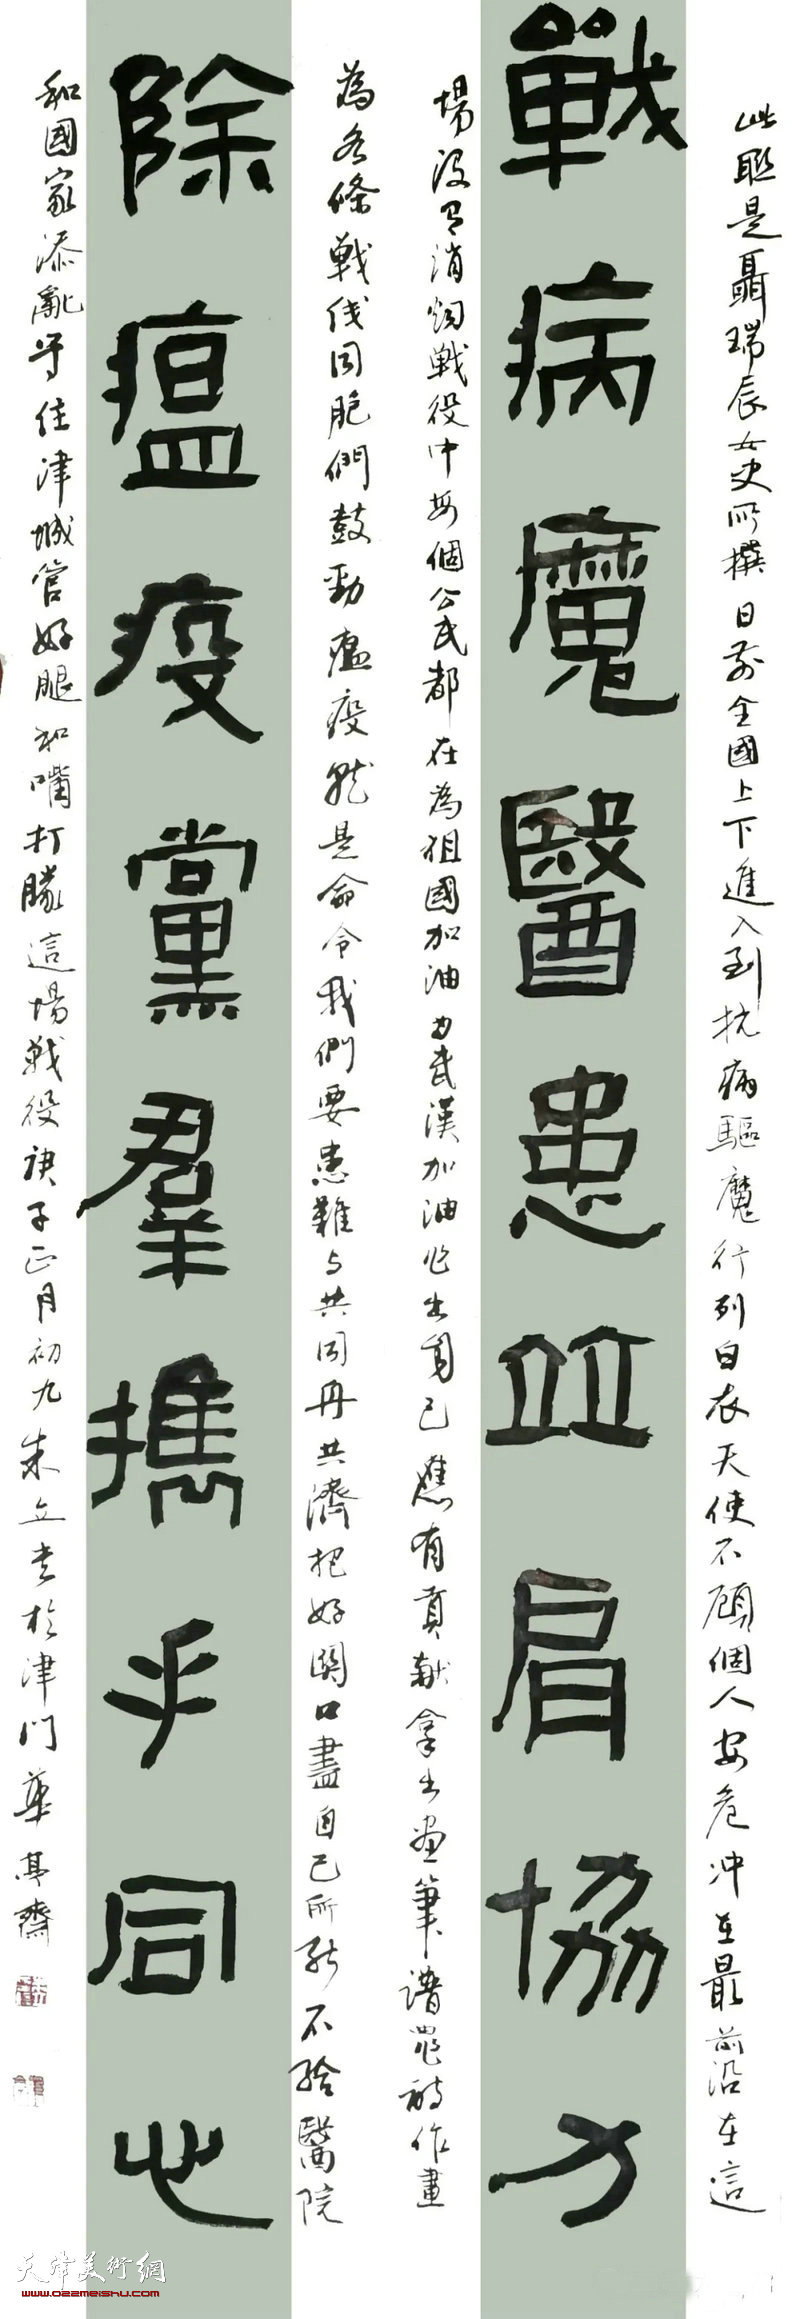 此聯是聶瑞辰女史所撰日前全國上下進入到抗病驅魔行列白衣天使不顧個人安危冲在最前沿在這
戰病魔醫患並肩協力
場没有消烟戰役中每個公民都在為祖國加油為武漢加油作出自己應有貢献拿出画筆譜器詩作畫
為各條戰线同胞們鼓勁瘟疫就是命令我們要患難与共同舟共濟把好関口盡自己所能不给醫院
除瘟疫黨羣攜手同心
和國家添亂守住津城管好腿和嘴打勝這場戰役庚子正月初九朱立書於津門華萁齋
天津美術網
www.022meishu.com